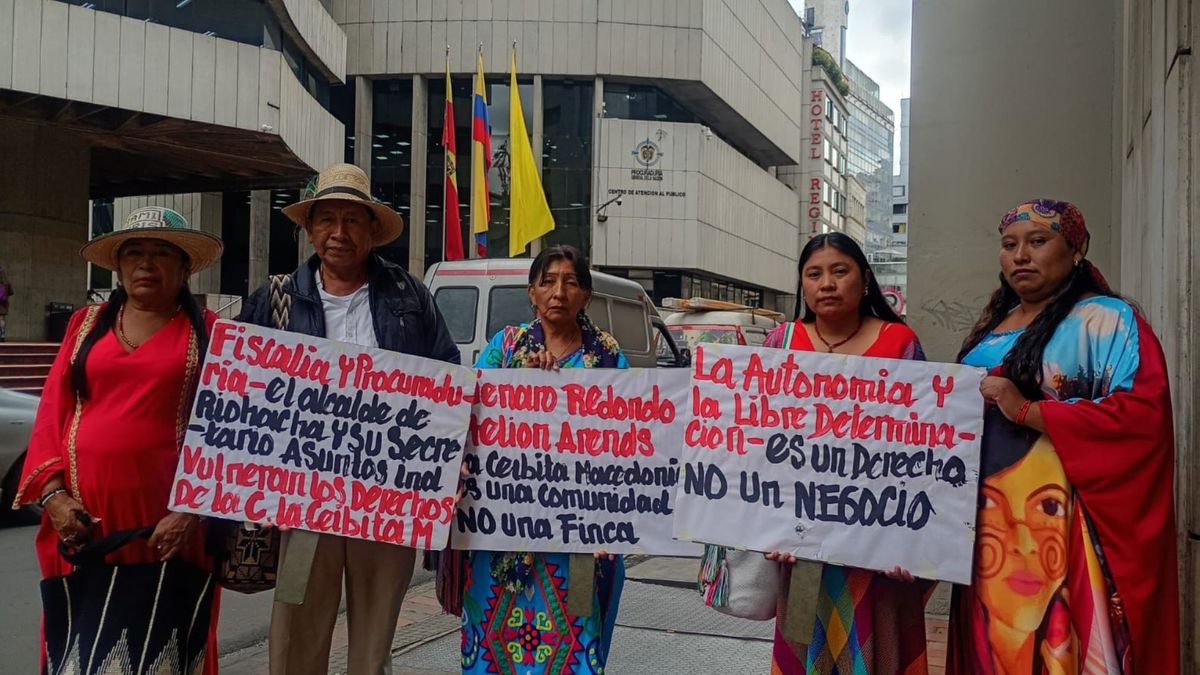 PROCURADURIA
GENERAL DE LA NACION
CENTRO DE ATENCIÓN AL PÚBLICO
HOTEL REGI
Fiscalía y Procuradu-
ría- el alcalde de
Riohacha y su Secre
-tario Asuntos Ind
Vulneran los Derechos
De la C. la Ceibita M
enaro Redondo
elion Arends
a Ceibita Macedoni
es una comunidad
NO una Finca
La Autonomia y
la Libre Determina-
cion- es un Derecho
NO un NEGOCIO